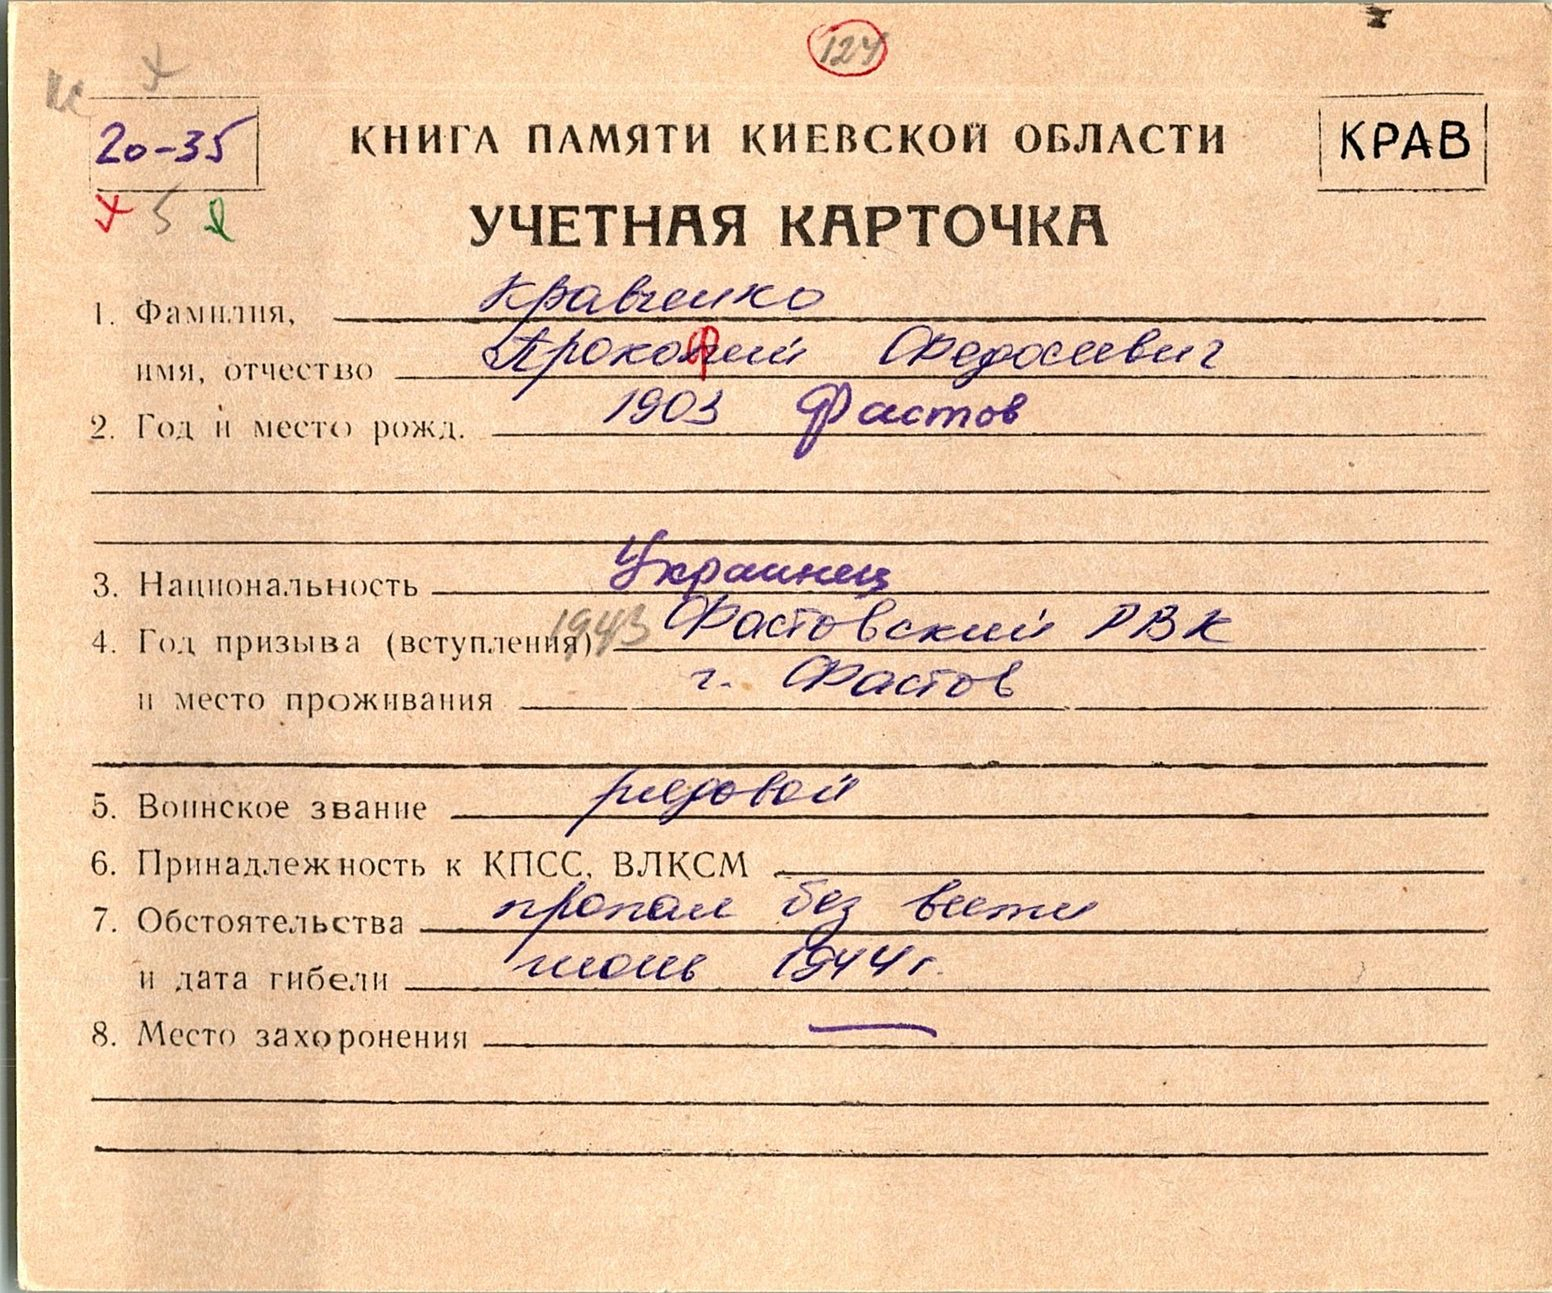 124
20-35
КНИГА ПАМЯТИ КИЕВСКОЙ ОБЛАСТИ
КРАВ
5
УЧЕТНАЯ КАРТОЧКА
1. Фамилия, Кравченко
имя, отчество Прокофий Федосиевич
2. Год и место рожд. 1903 Фастов
3. Национальность Украинец
4. Год призыва (вступления) 1943 Фастовский РВК
и место проживания г. Фастов
5. Воинское звание рядовой
6. Принадлежность к КПСС, ВЛКСМ
7. Обстоятельства пропал без вести
и дата гибели июнь 1944 г.
8. Место захоронения —